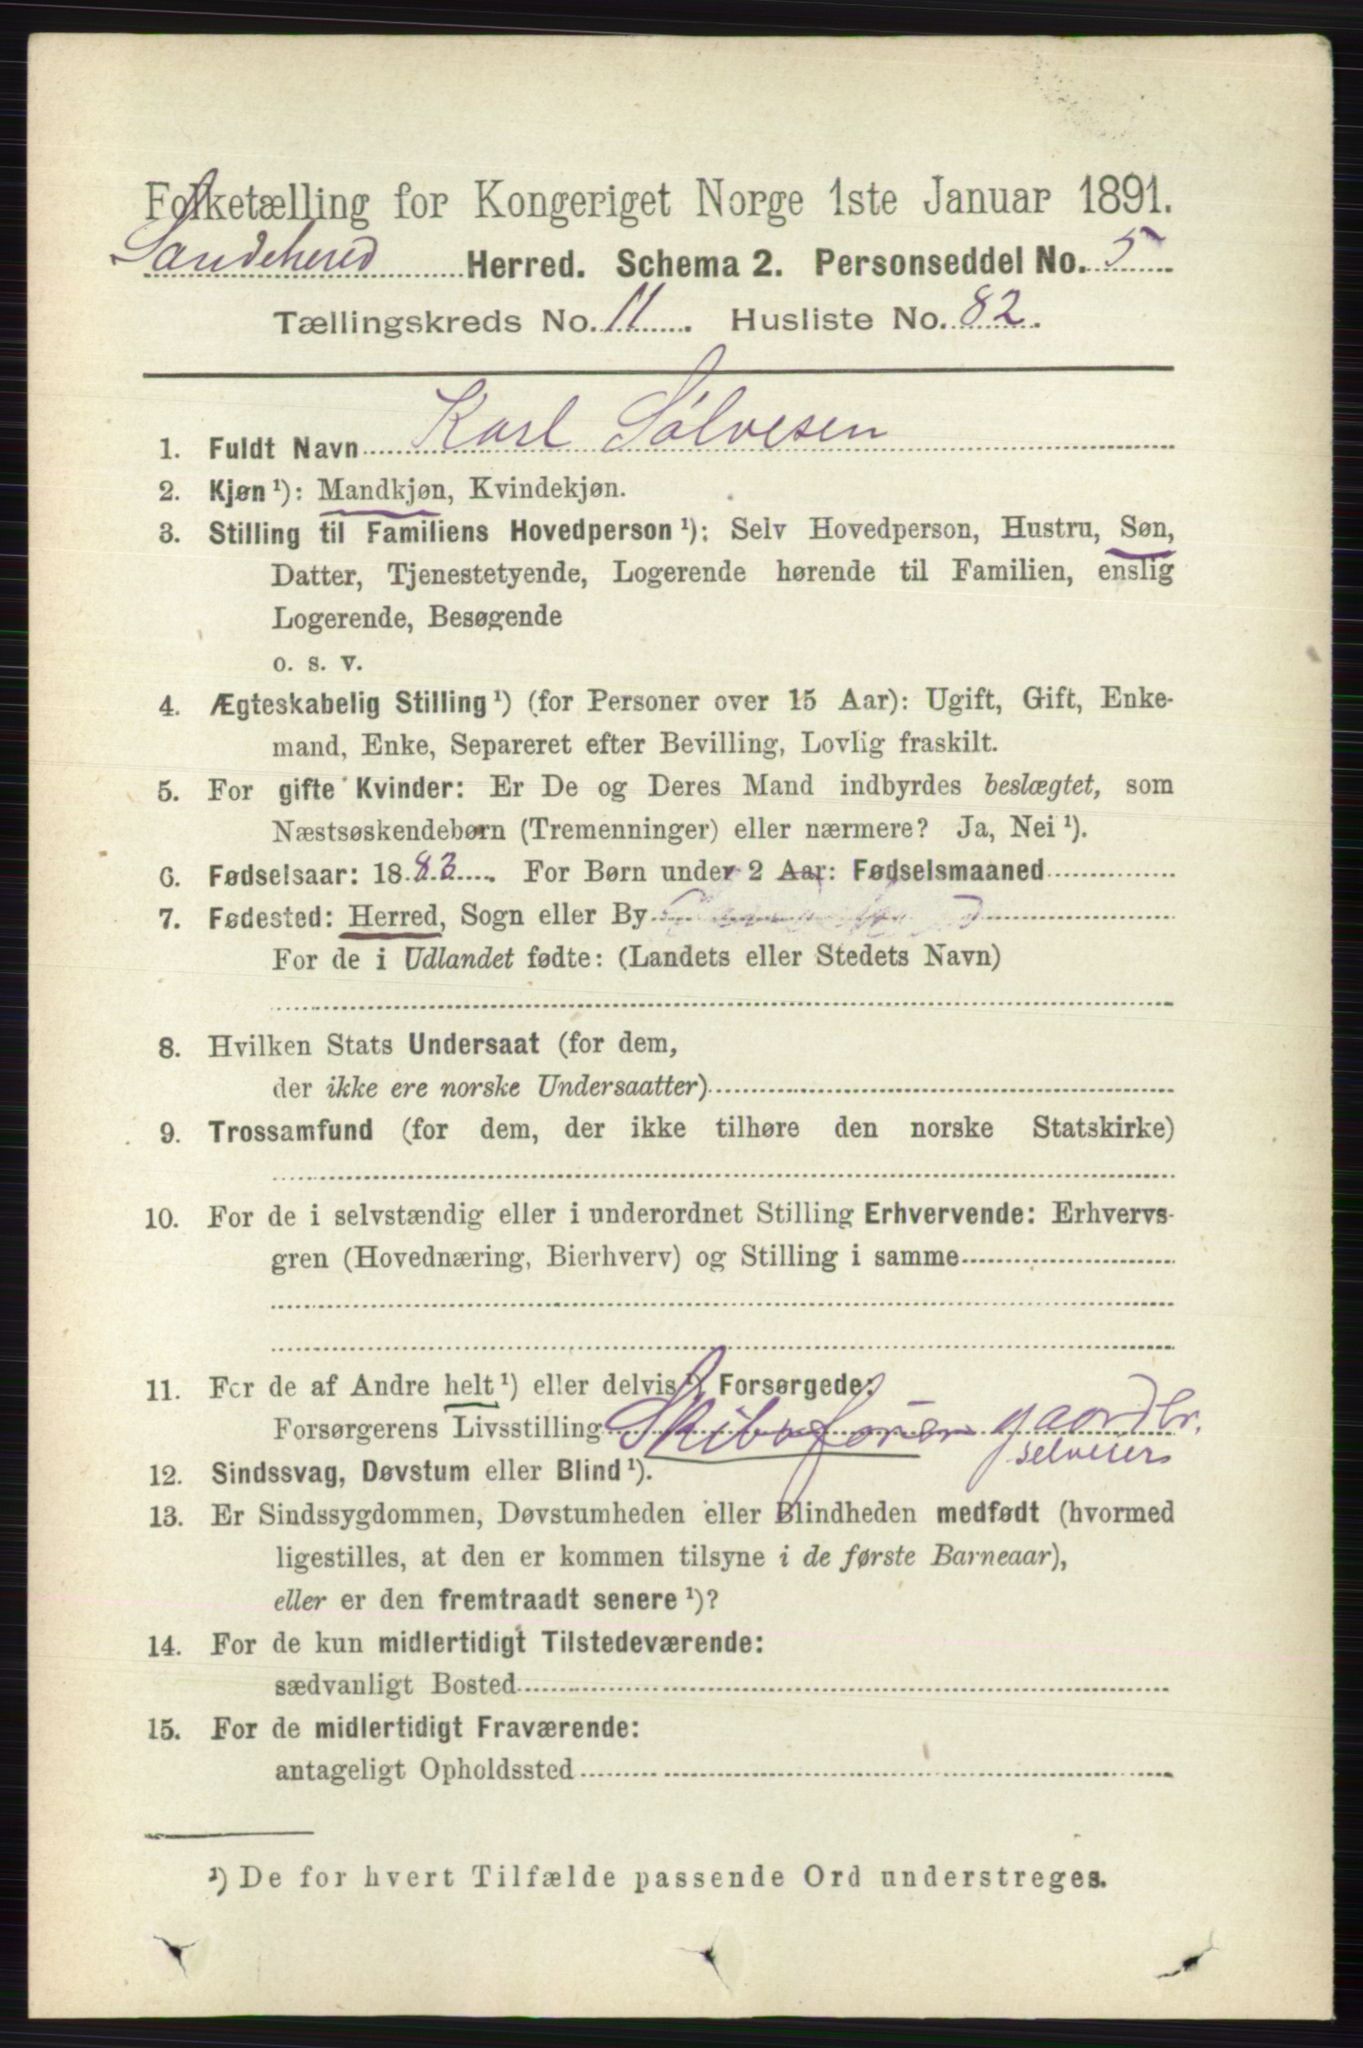 Folketælling for Kongeriget Norge 1ste Januar 1891.
Sandeherred Herred. Schema 2. Personseddel No. 5
Tællingskreds No. 11. Husliste No. 82.
1. Fuldt Navn Karl Sølvesen
2. Kjøn ¹): Mandkjøn, Kvindekjøn.
3. Stilling til Familiens Hovedperson ¹): Selv Hovedperson, Hustru, Søn,
Datter, Tjenestetyende, Logerende hørende til Familien, enslig
Logerende, Besøgende
o. s. v.
4. Ægteskabelig Stilling ¹) (for Personer over 15 Aar): Ugift, Gift, Enke-
mand, Enke, Separeret efter Bevilling, Lovlig fraskilt.
5. For gifte Kvinder: Er De og Deres Mand indbyrdes beslægtet, som
Næstsøskendebørn (Tremenninger) eller nærmere? Ja, Nei ¹).
6. Fødselsaar: 1883. For Børn under 2 Aar: Fødselsmaaned
7. Fødested: Herred, Sogn eller By
For de i Udlandet fødte: (Landets eller Stedets Navn)
8. Hvilken Stats Undersaat (for dem,
der ikke ere norske Undersaatter)
9. Trossamfund (for dem, der ikke tilhøre den norske Statskirke)
10. For de i selvstændig eller i underordnet Stilling Erhvervende: Erhvervs-
gren (Hovednæring, Bierhverv) og Stilling i samme
11. For de af Andre helt ¹) eller delvis ¹) Forsørgede:
Forsørgerens Livsstilling Skibsfører gaardbr.
selveier
12. Sindssvag, Døvstum eller Blind ¹).
13. Er Sindssygdommen, Døvstumheden eller Blindheden medfødt (hvormed
ligestilles, at den er kommen tilsyne i de første Barneaar),
eller er den fremtraadt senere ¹)?
14. For de kun midlertidigt Tilstedeværende:
sædvanligt Bosted
15. For de midlertidigt Fraværende:
antageligt Opholdssted
¹) De for hvert Tilfælde passende Ord understreges.